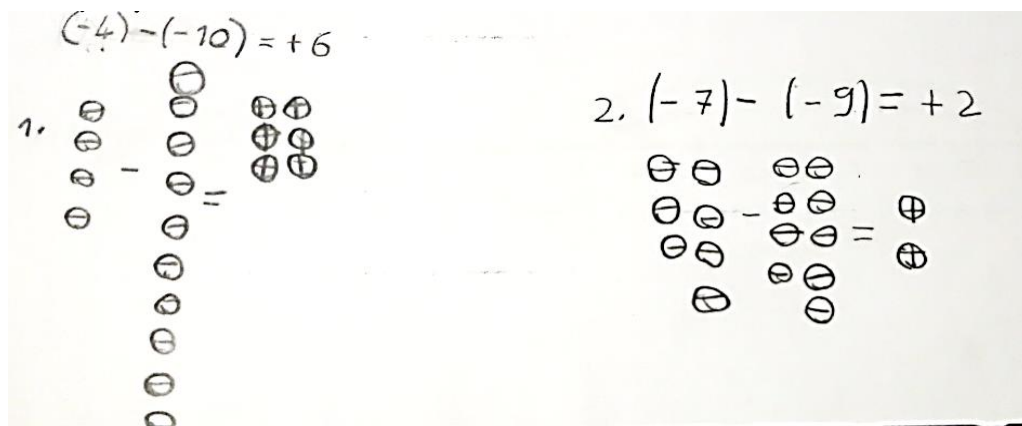 (-4)-(-10)=+6
1.
- =
2. (-7)- (-9)=+2
- =